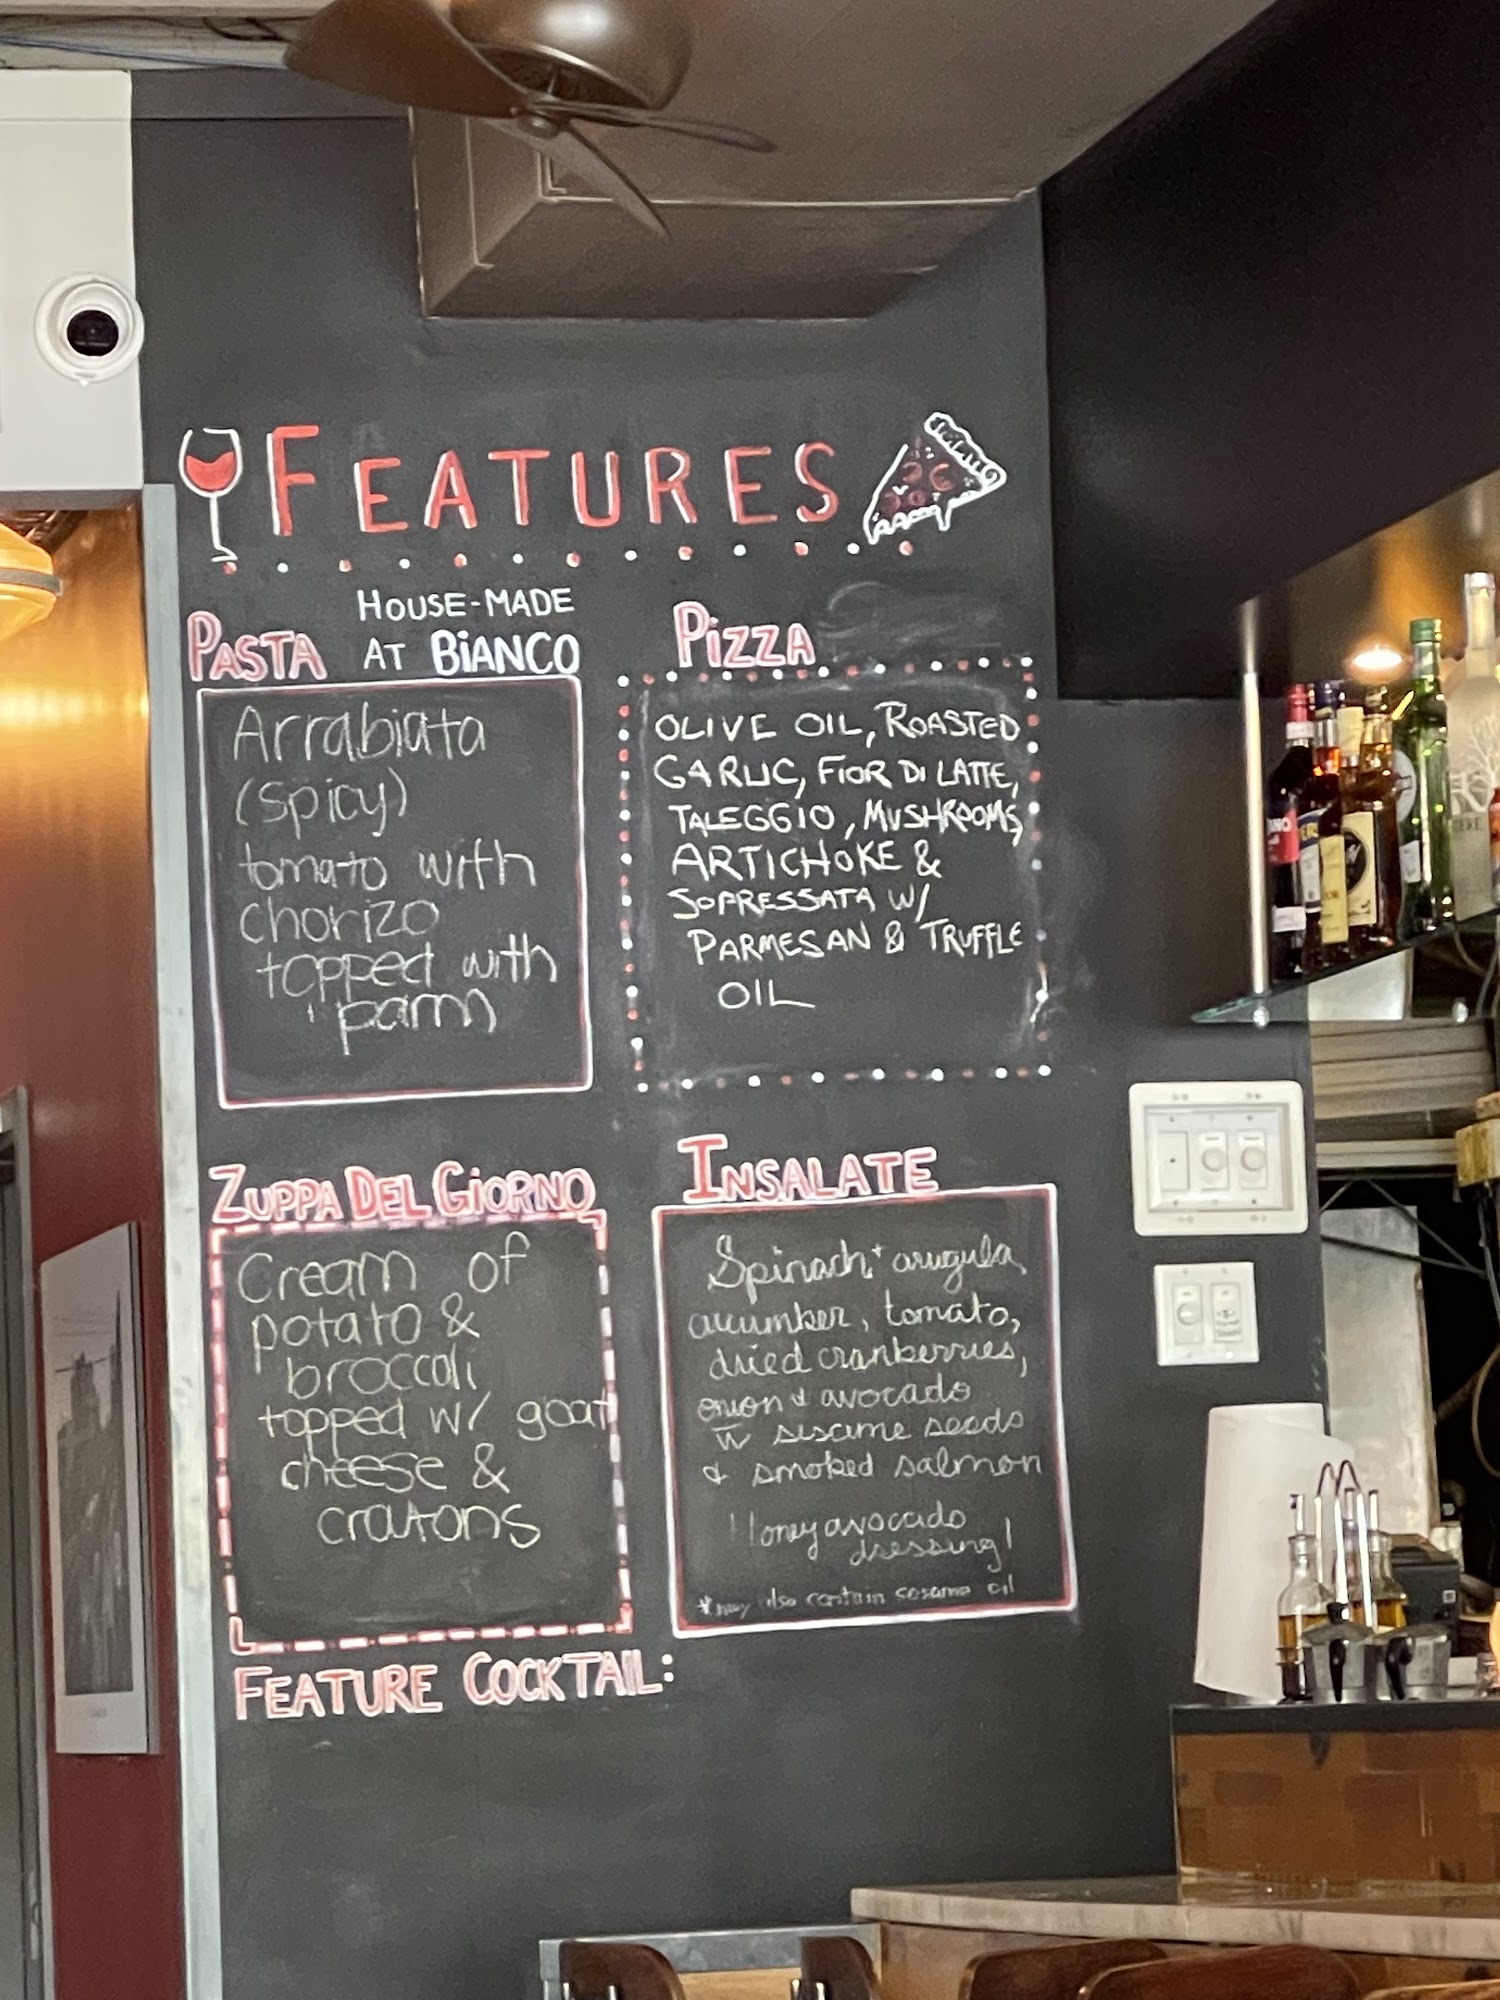 FEATURES
PASTA
HOUSE-MADE
AT BIANCO
Arrabiata
(spicy)
tomato with
chorizo
topped with
parm
PIZZA
OLIVE OIL, ROASTED
GARLIC, FIOR DI LATTE,
TALEGGIO, MUSHROOMS,
ARTICHOKE &
SOPRESSATA W/
PARMESAN & TRUFFLE
OIL
ZUPPA DEL GIORNO
Cream of
potato &
broccoli
topped w/ goat
cheese &
cratons
INSALATE
Spinach + arugula,
cucumber, tomato,
dried cranberries,
onion & avocado
w sesame seeds
& smoked salmon
Honey avocado
dressing!
*may also contain sesame oil
FEATURE COCKTAIL: